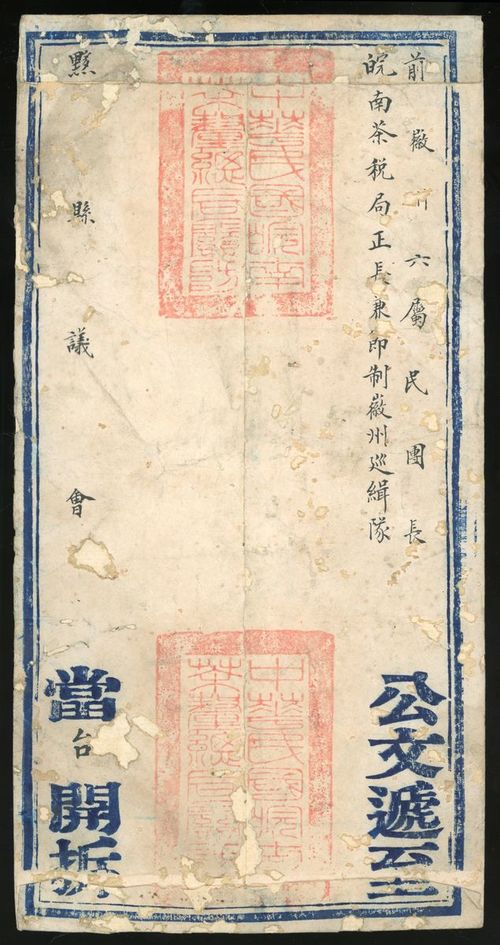 前徽州六屬民團長
皖南茶税局正長兼即制徽州巡緝隊
公文遞至
中華民國皖南
茶釐總局關防
中華民國皖南
茶釐總局關防
黟縣議會
當台開拆